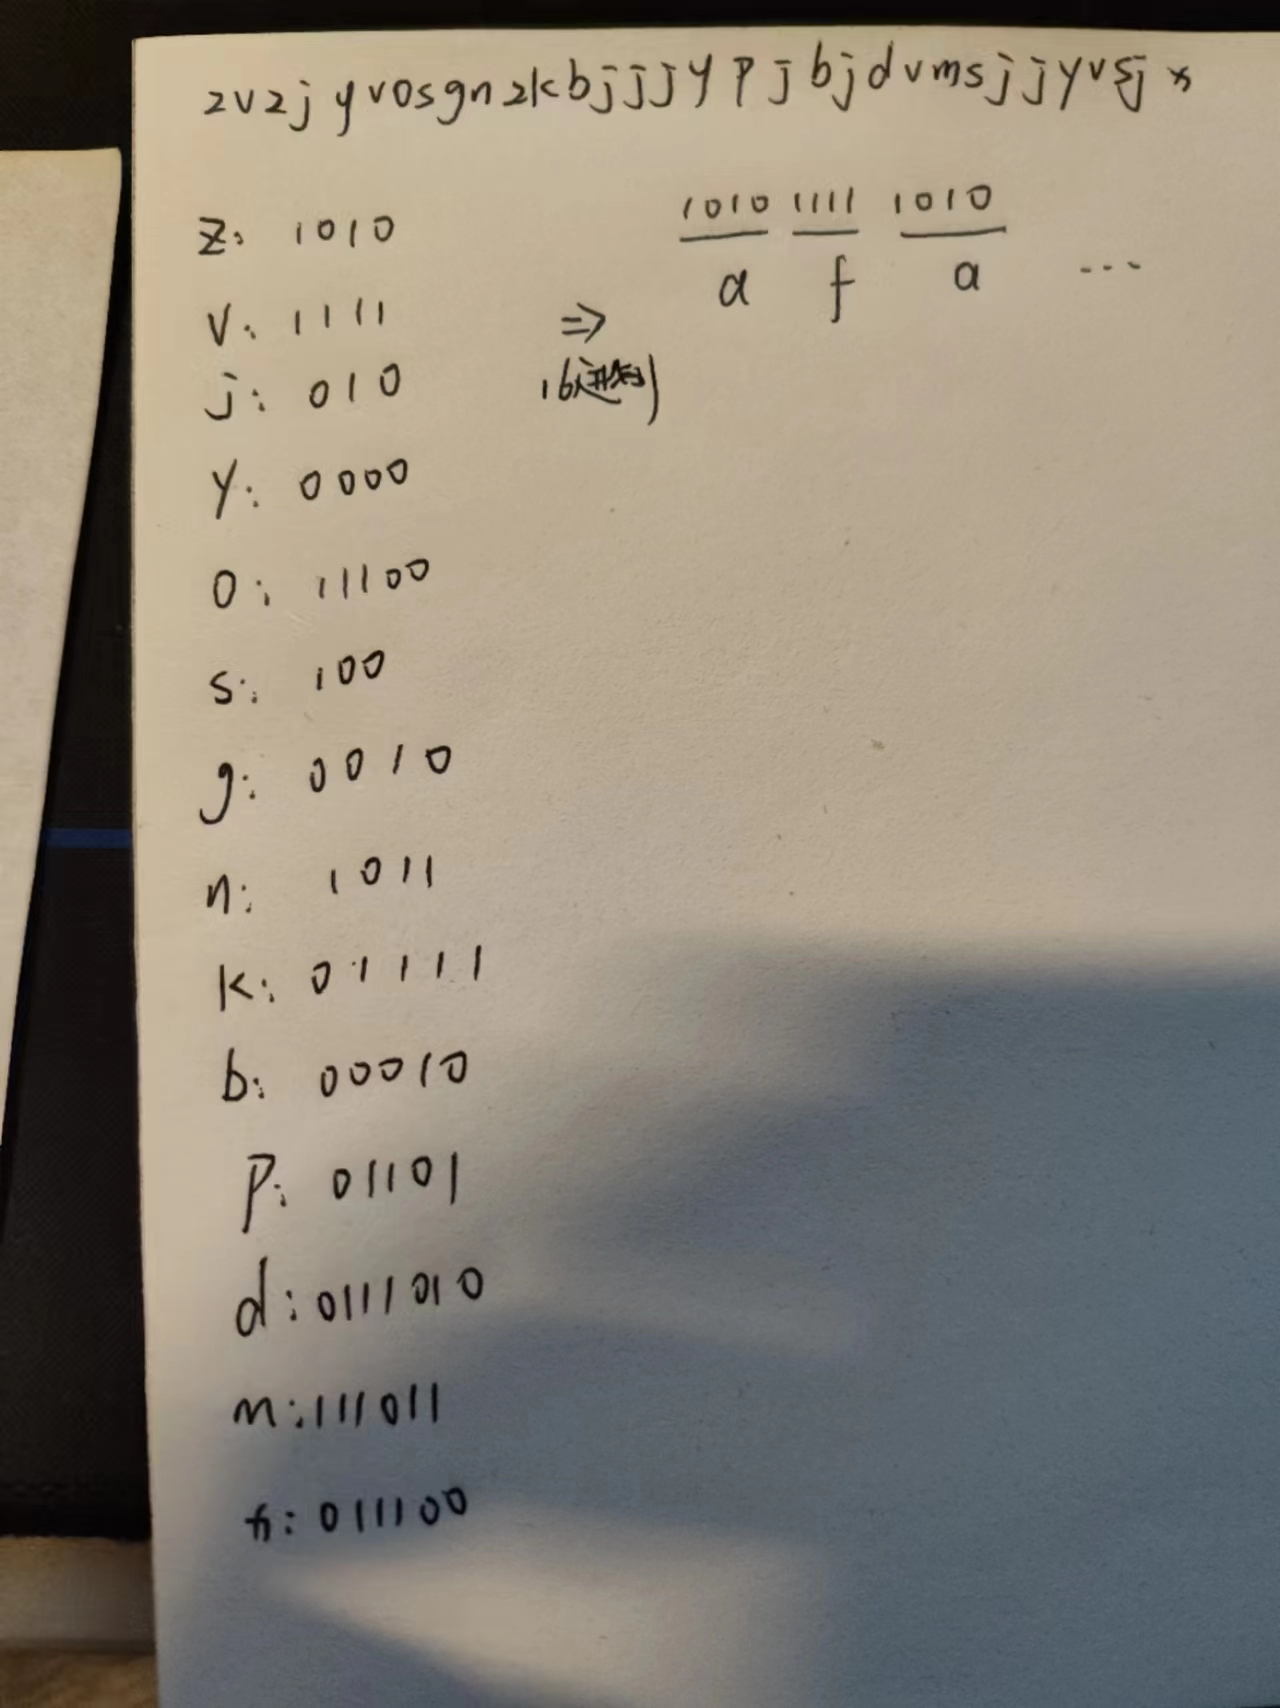 zvzjyvosgnzkbjjjypjbjdvmsjjyvsjx
z: 1010
v: 1111
j: 010
y: 0000
o: 11100
s: 100
g: 0010
n: 1011
k: 01111
b: 00010
p: 01101
d: 0111010
m: 111011
x: 011100
⇒
16进制
1010 1111 1010
a f a ...